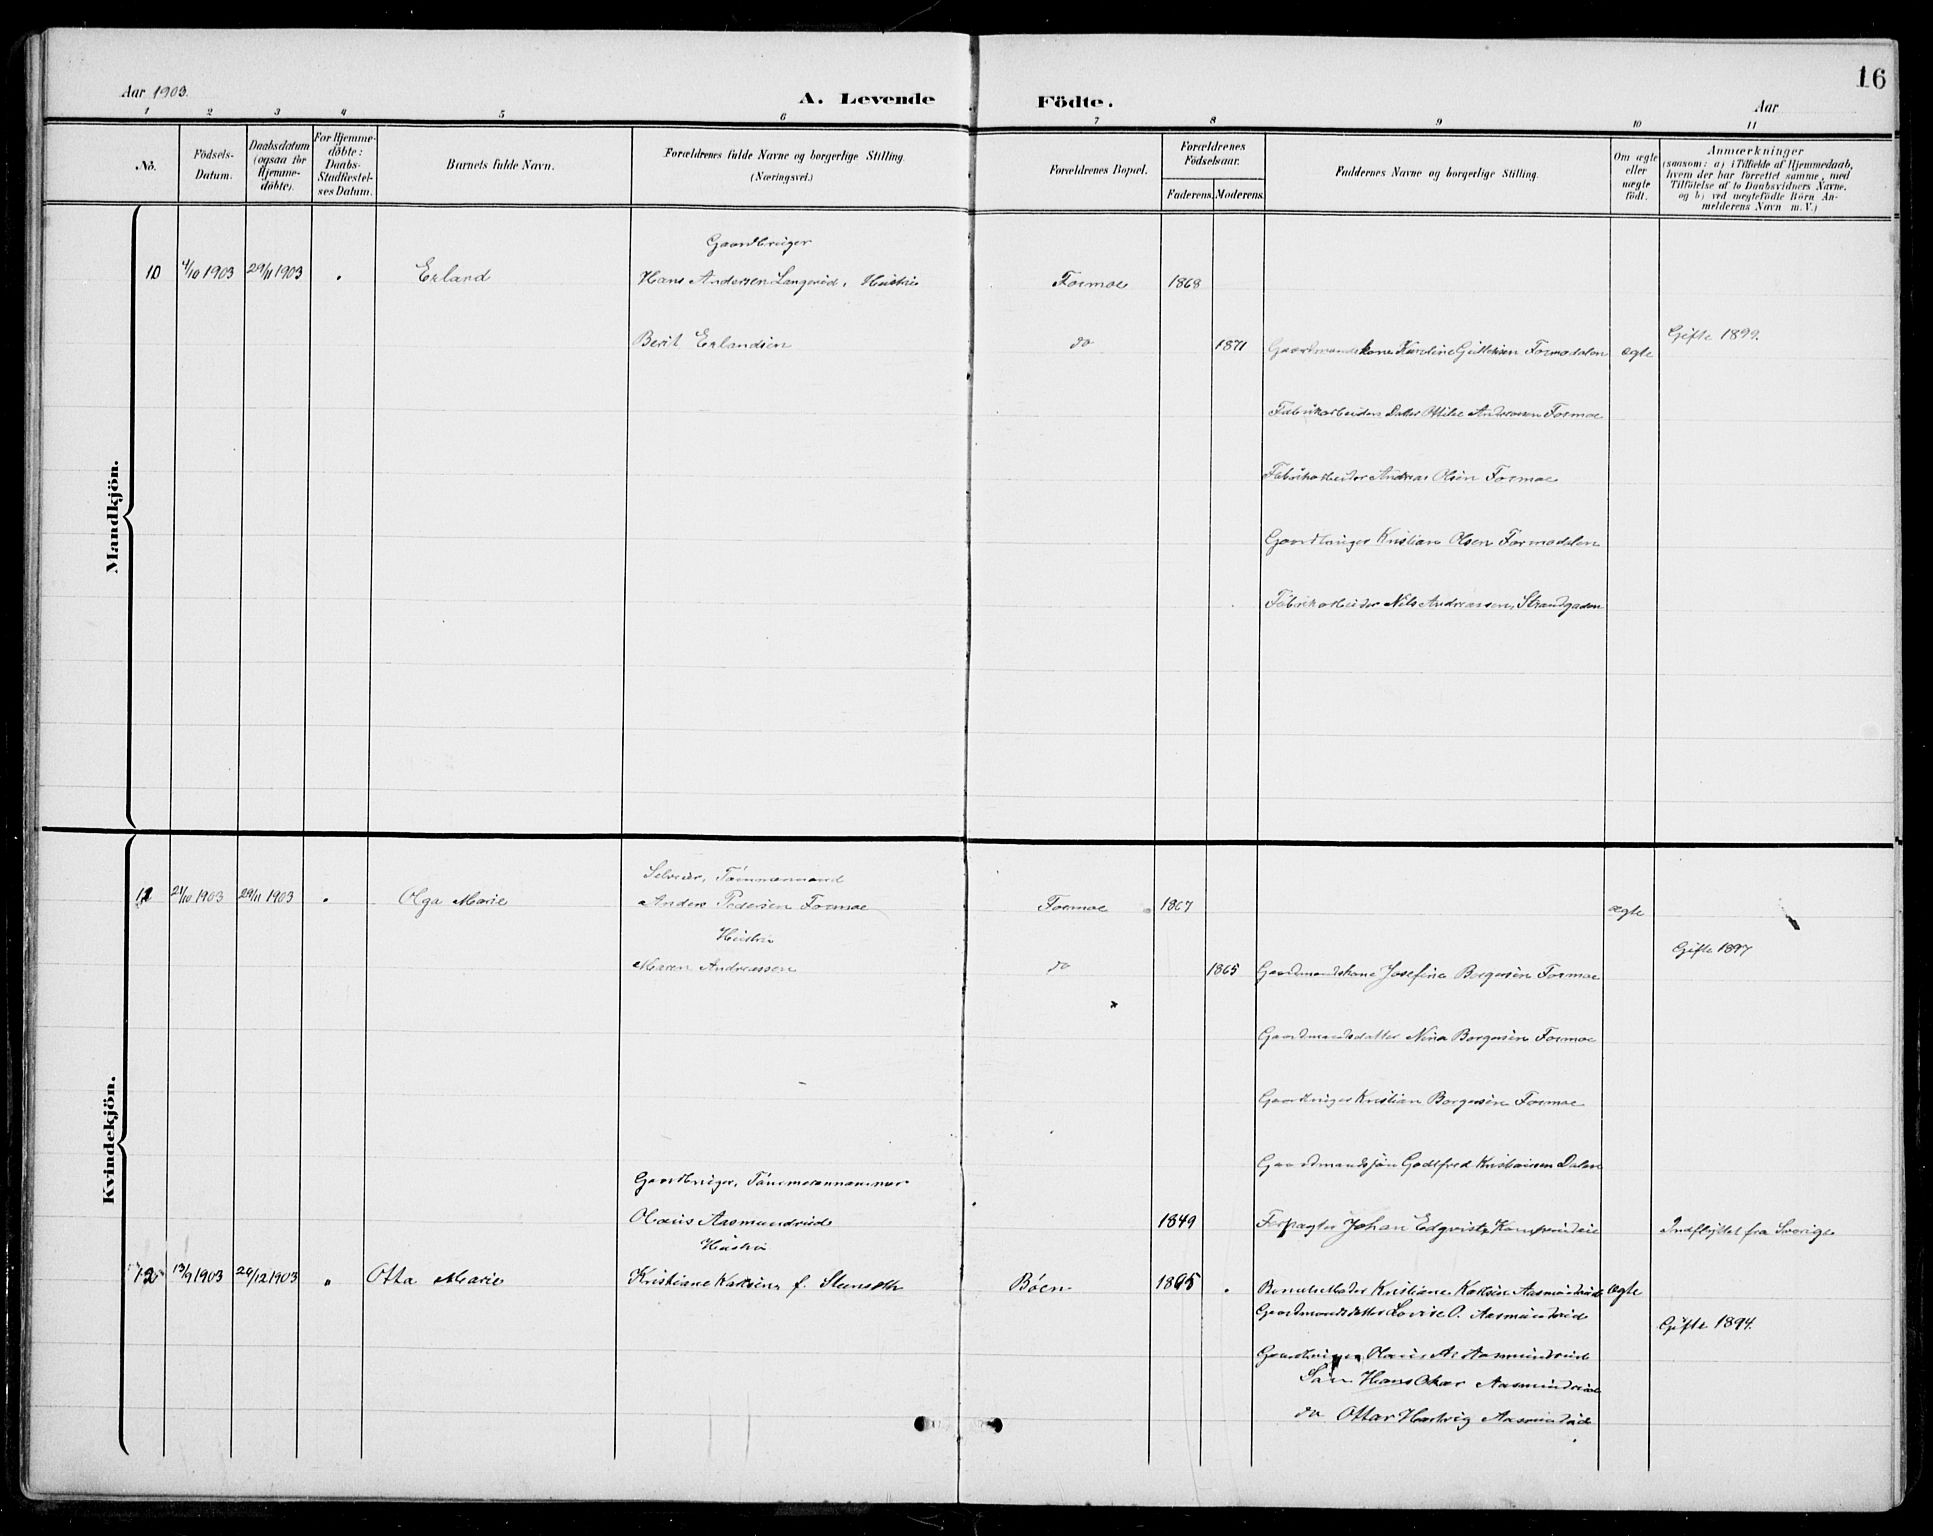 16
Aar 1903.
A. Levende Födte.
Aar
1 2 3 4 5 6 7 8 9 10 11
No.
Födsels-Datum.
Daabsdatum (ogsaa for Hjemme-döbte).
For Hjemme-döbte: Daabs-Stadfæstel-ses Datum.
Barnets fulde Navn.
Forældrenes fulde Navne og borgerlige Stilling.
(Næringsvei.)
Forældrenes Bopæl.
Forældrenes Födselsaar.
Faderens. Moderens.
Faddernes Navne og borgerlige Stilling.
Om ægte eller uægte födt.
Anmærkninger
(saasom: a) i Tilfælde af Hjemmedaab, hvem der har forrettet samme, med Tilföielse af to Daabsvidners Navne. og b) ved uægtefödte Börn An-melderens Navn m. V.)
Mandkjön.
Gaardbruger
10 4/10 1903 29/11 1903 Erland Hans Andersen Langerød, Hustru Formoe 1868
Berit Erlandsen do 1871 Gaardmandskone Karoline Gulliksen Formodalen ægte Gifte 1899.
Fabrikarbeiders Datter Andreassen Formoe
Fabrikarbeider Andreas Olsen Formoe
Gaardbruger Kristian Olsen Formodalen
Fabrikarbeider Nils Andreassen, Strandgaden
Kvindekjön.
Selveier, Tömmermand
11 21/10 1903 29/11 1903 Olga Marie Anders Pedersen Formoe Formoe 1867 ægte
Hustru
Maren Andreassen do 1865 Gaardmandskone Josefine Borgersen Formoe Gifte 1897
Gaardmandsdatter Nina Borgersen Formoe
Gaardbruger Kristian Borgersen Formoe
Gaardmandssön Godtfred Kristiansen Dalen
Gaardbruger, Tömmermannammer
Olaus Aasmundrud 1849 Forpagter Johan Edqvist Indflyttet fra Sverige
Hustru
12 13/9 1903 26/12 1903 Otta Marie Kristiane Karlsen f. Bøen 1865 Kristiane Karlsen Aasmundrud ægte
Gaardmandsdatter Lovise O. Aasmundrud
Gifte 1894.
Gaardbruger Olaus A. Aasmundrud
Søn Hans Oskar Aasmundrud
do Ottar Hartvig Aasmundrud